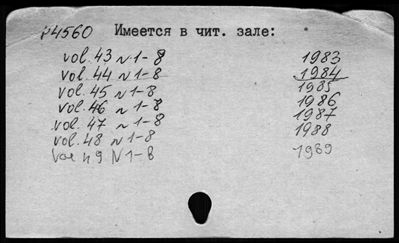 P4560 Имеется в чит. зале:
vol. 43 N 1-8 1983
vol. 44 N 1-8 1984
vol. 45 N 1-8 1985
vol. 46 N 1-8 1986
vol. 47 N 1-8 1987
vol. 48 N 1-8 1988
vol 49 N 1-8 1989